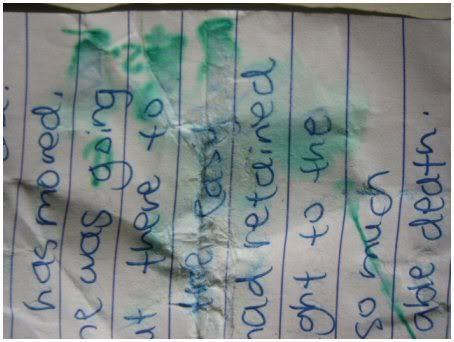 has moved.
he was going
ut there to
the easy
had retained
ght to the
so much
able death.